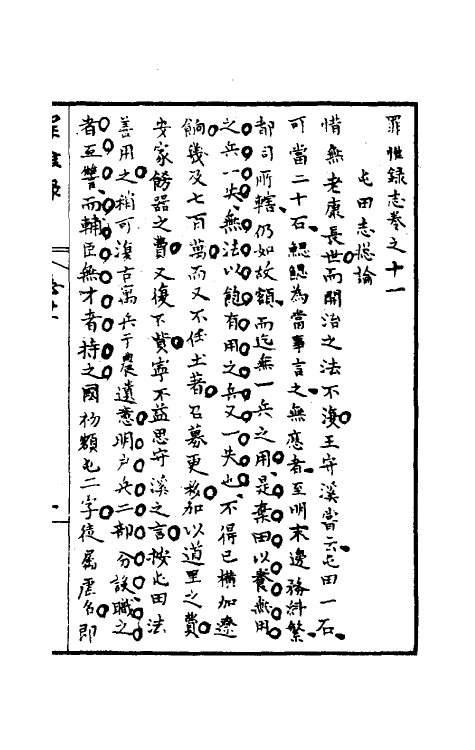 罪惟錄志卷之十一
屯田志總論
惜無老康長世而開治之法不復王守溪嘗云屯田一石
可當二十石鰓鰓為當事言之無應者至明末邊務斜繁
都司所轄仍如故額而迄無一兵之用是棄田以養無用
之兵一失無法以飽有用之兵又一失也不得已橫加遼
餉幾及七百萬而又不任土著召募更移加以道里之費
安家餝器之費又復不貲寧不益思守溪之言按屯田法
善用之稍可復古寓兵于農遺意明戶兵二部分設職之
者互讐而輔臣無才者持之國初類屯二字徒屬虛名即
罪惟錄